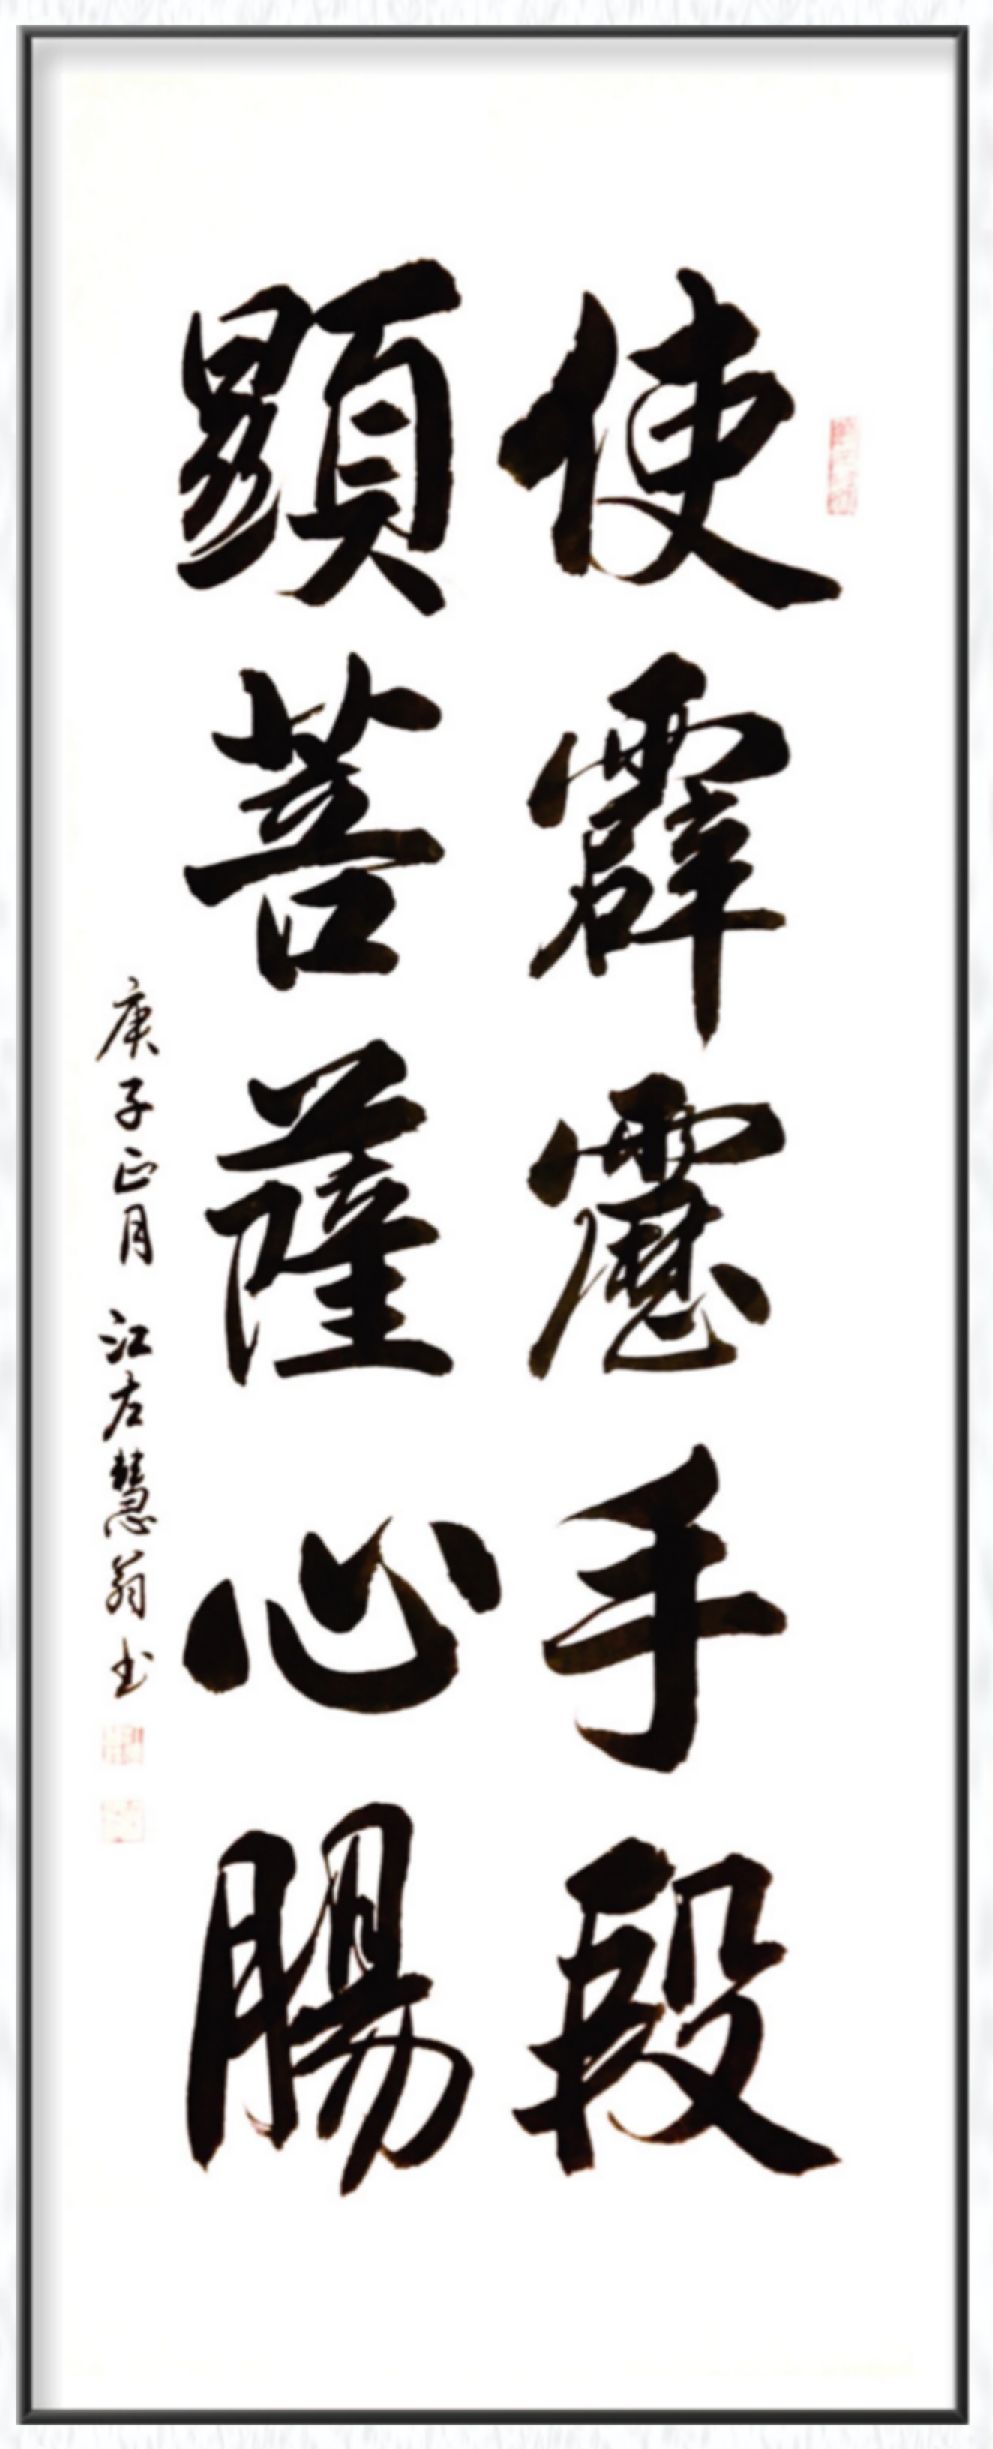 使霹靂手段
顯菩薩心腸
庚子正月 江左慧翁书